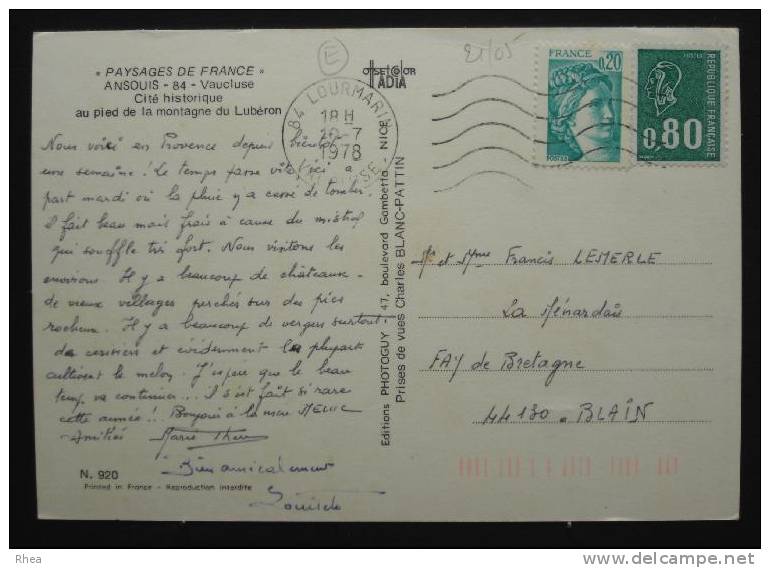 « PAYSAGES DE FRANCE »
ANSOUIS - 84 - Vaucluse
Cité historique
au pied de la montagne du Lubéron
Nous voici en Provence depuis bientôt
une semaine ! Le temps passe vite ici à
part mardi où la pluie n'a cessé de tomber.
il fait beau mais frais à cause du mistral
qui souffle très fort. Nous visitons les
environs. Il y a beaucoup de châteaux -
de vieux villages perchés sur des pics
rocheux. Il y a beaucoup de vergers surtout
des cerisiers et évidemment la plupart
cultivent le melon. J'espère que le beau
temps va continuer... il s'est fait si rare
cette année !! Bonjour à la
Amitiés Marie
Bien amicalement
N. 920
Printed in France - Reproduction interdite
Editions PHOTOGUY - 47, boulevard Gambetta - NICE
Prises de vues Charles BLANC-PATTIN
OFFSET COLOR
IADIA
E
21/05
84 LOURMARIN
18 H
1978
VAUCLUSE
FRANCE
0,20
POSTES
POSTES
0,80
REPUBLIQUE FRANÇAISE
Mr et Mme Francis LEMERLE
La Ménardais
FAY de Bretagne
44130 - BLAIN
Rhea
www.delcampe.net